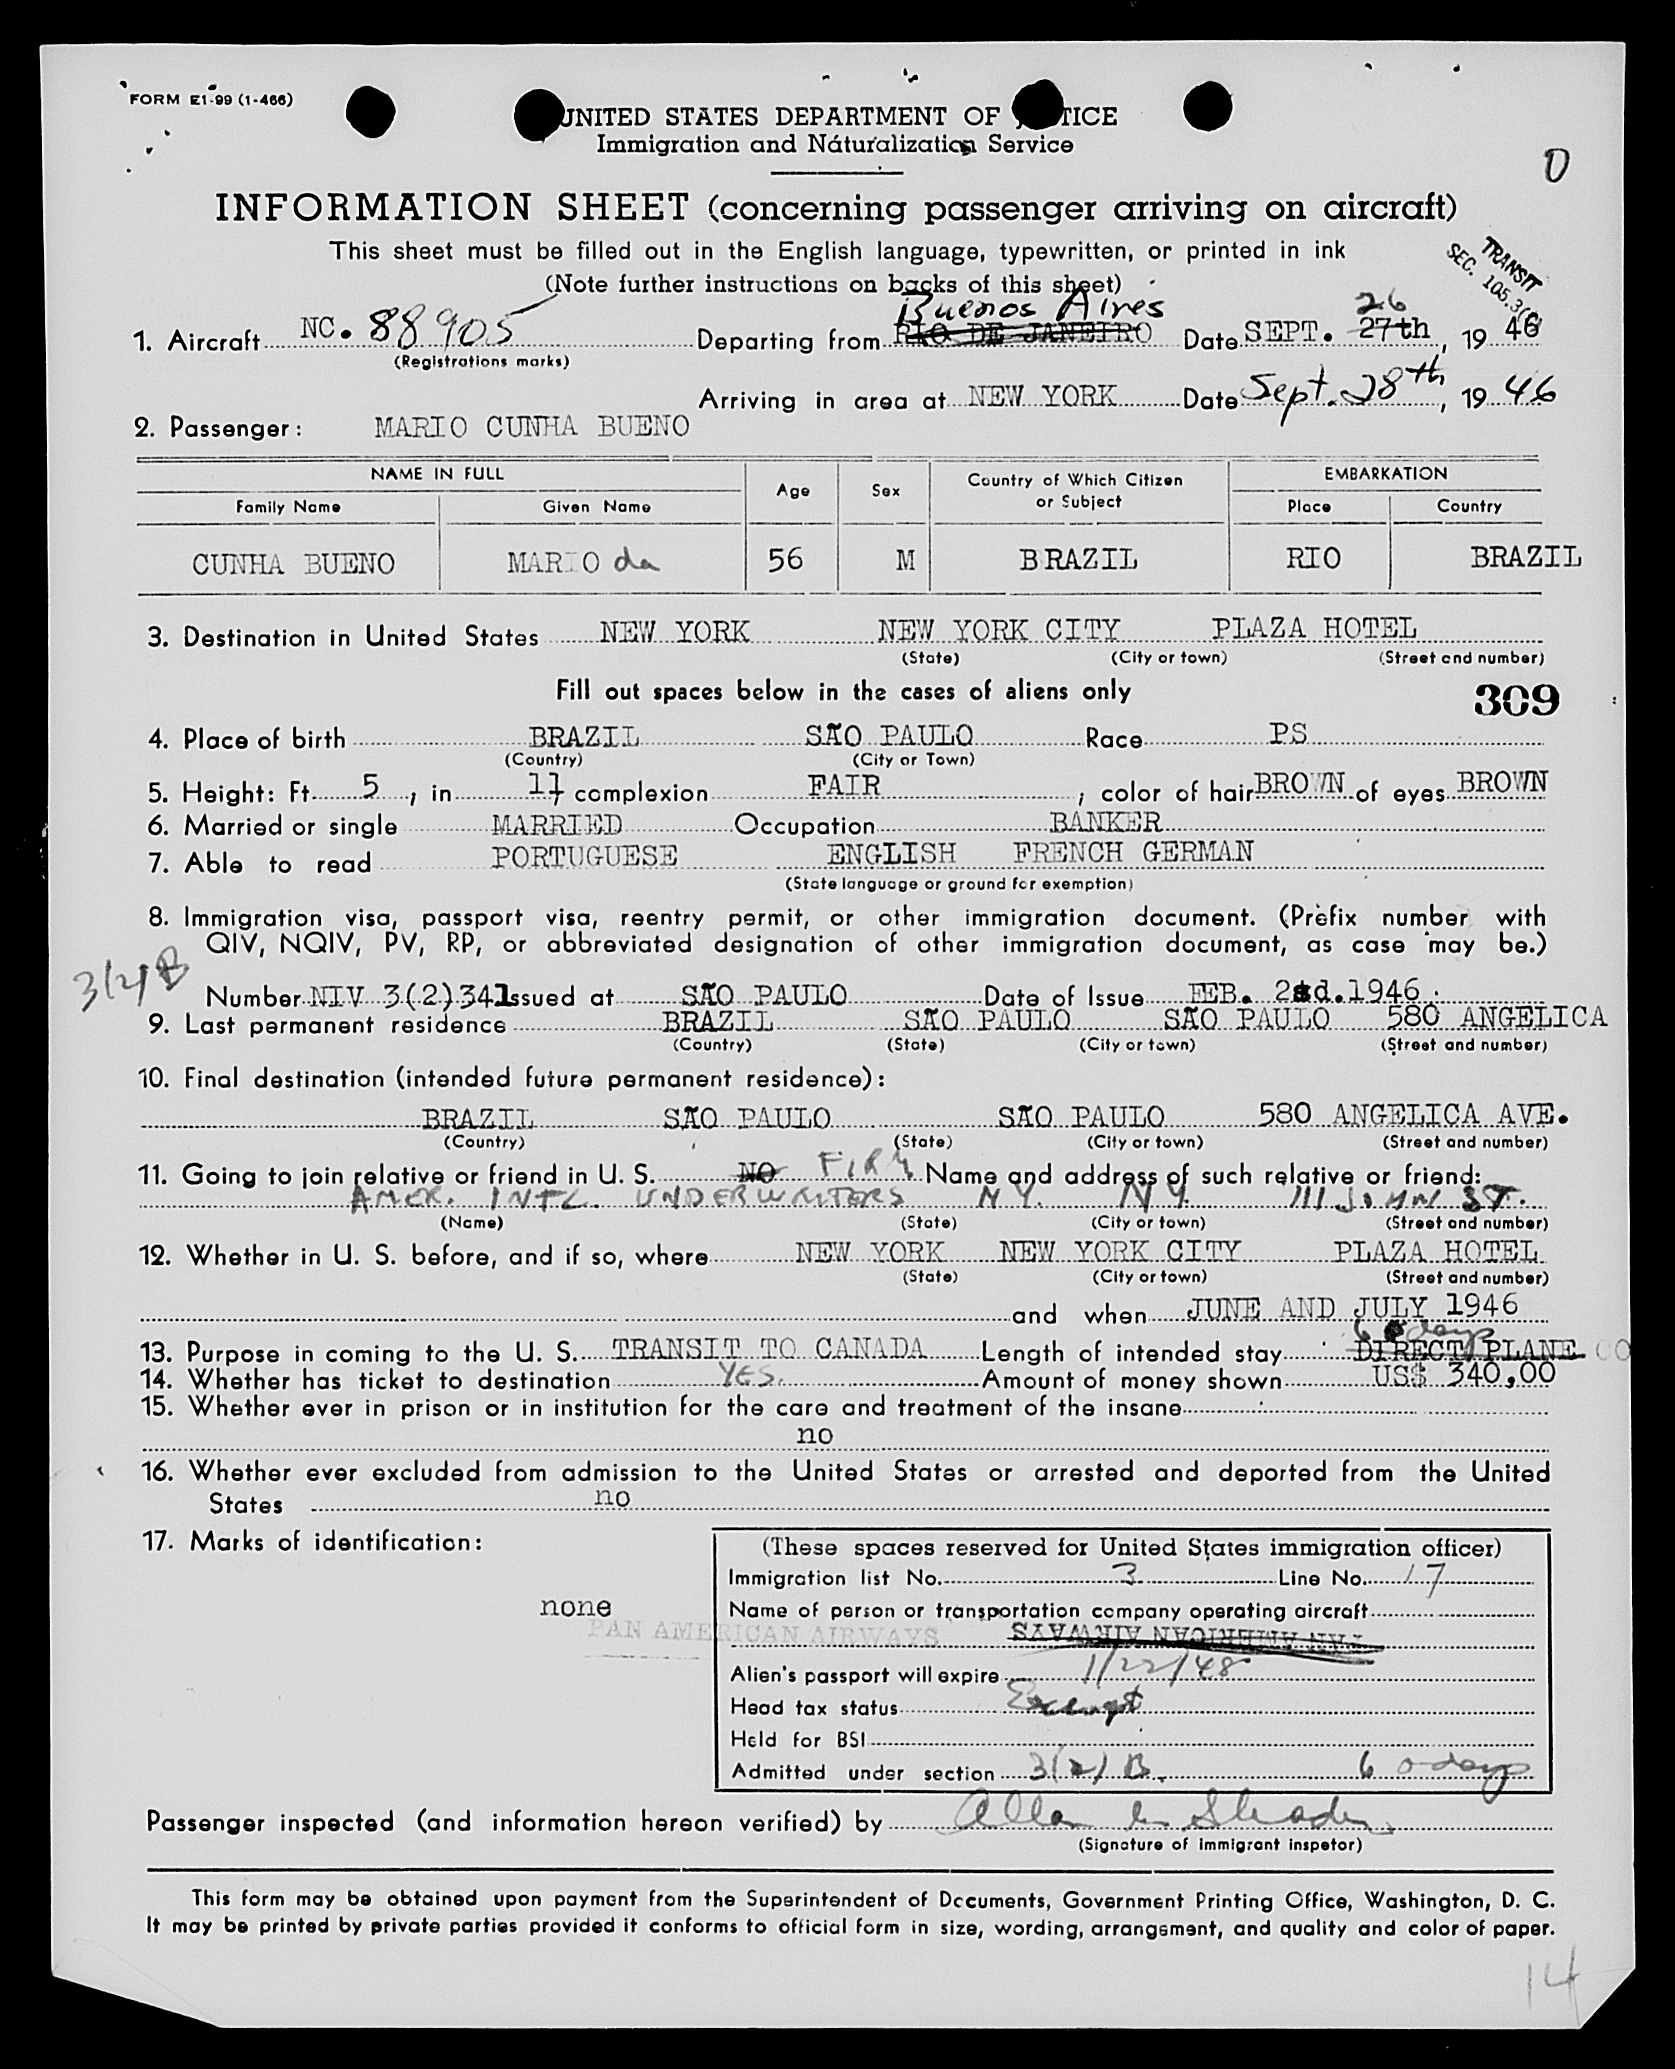 FORM E1-99 (1-466)
UNITED STATES DEPARTMENT OF J TICE
Immigration and Naturalization Service
O
INFORMATION SHEET (concerning passenger arriving on aircraft)
This sheet must be filled out in the English language, typewritten, or printed in ink
(Note further instructions on backs of this sheet)
TRANSIT
SEC. 105.3(c)
Buenos Aires 26
1. Aircraft NC. 88905 Departing from RIO DE JANEIRO Date SEPT. 27th, 19 46
(Registrations marks)
Arriving in area at NEW YORK Date Sept. 28th, 19 46
2. Passenger: MARIO CUNHA BUENO
NAME IN FULL Age Sex Country of Which Citizen or Subject EMBARKATION
Family Name Given Name Place Country
CUNHA BUENO MARIO da 56 M BRAZIL RIO BRAZIL
3. Destination in United States NEW YORK NEW YORK CITY PLAZA HOTEL
(State) (City or town) (Street and number)
Fill out spaces below in the cases of aliens only 309
4. Place of birth BRAZIL SÃO PAULO Race PS
(Country) (City or Town)
5. Height: Ft. 5, in. 11 complexion FAIR, color of hair BROWN of eyes BROWN
6. Married or single MARRIED Occupation BANKER
7. Able to read PORTUGUESE ENGLISH FRENCH GERMAN
(State language or ground for exemption)
8. Immigration visa, passport visa, reentry permit, or other immigration document. (Prefix number with
QIV, NQIV, PV, RP, or abbreviated designation of other immigration document, as case may be.)
3(2)B
Number NIV 3(2)341 Issued at SÃO PAULO Date of Issue FEB. 2d. 1946
9. Last permanent residence BRAZIL SÃO PAULO SÃO PAULO 580 ANGELICA
(Country) (State) (City or town) (Street and number)
10. Final destination (intended future permanent residence):
BRAZIL SÃO PAULO SÃO PAULO 580 ANGELICA AVE.
(Country) (State) (City or town) (Street and number)
11. Going to join relative or friend in U. S. NO FIRM Name and address of such relative or friend:
AMER. INTL. UNDERWRITERS N.Y. N.Y. 111 JOHN ST.
(Name) (State) (City or town) (Street and number)
12. Whether in U. S. before, and if so, where NEW YORK NEW YORK CITY PLAZA HOTEL
(State) (City or town) (Street and number)
and when JUNE AND JULY 1946
6 days
13. Purpose in coming to the U. S. TRANSIT TO CANADA Length of intended stay DIRECT PLANE CO
14. Whether has ticket to destination YES. Amount of money shown US$ 340,00
15. Whether ever in prison or in institution for the care and treatment of the insane
no
16. Whether ever excluded from admission to the United States or arrested and deported from the United
States no
17. Marks of identification:
none
(These spaces reserved for United States immigration officer)
Immigration list No. 3 Line No. 17
Name of person or transportation company operating aircraft
PAN AMERICAN AIRWAYS PAN AMERICAN AIRWAYS
Alien's passport will expire 1/22/48
Head tax status Exempt
Held for BSI
Admitted under section 3(2)B. 6 0 days
Passenger inspected (and information hereon verified) by
(Signature of immigrant inspetor)
This form may be obtained upon payment from the Superintendent of Documents, Government Printing Office, Washington, D. C.
It may be printed by private parties provided it conforms to official form in size, wording, arrangement, and quality and color of paper.
14